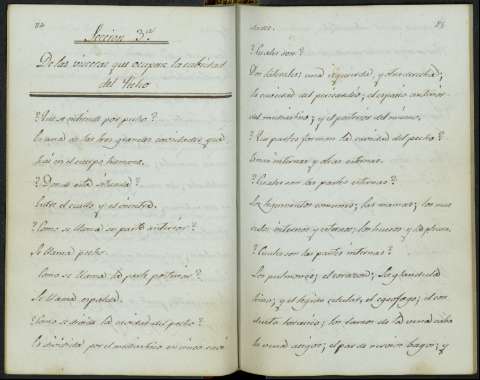 24
Seccion 3.ª
De las visceras que ocupan la cabidad
del Pecho
? Que se entiende por pecho?
Es una de las tres grandes cavidades que
hai en el cuerpo humano.
? Donde está situada?
Entre el cuello y el vientre.
? Como se llama su parte anterior?
Se llama pecho.
Como se llama la parte posterior?
Se llama espalda.
? Como se divide la cavidad del pecho?
Es dividida por el mediastino en cinco cavi
dades.
? Cuales son?
Dos laterales, una izquierda, y otra derecha;
la cavidad del pericardio; el espacio anterior
del mediastino; y el posterior del mismo.
? Que partes forman la cavidad del pecho?
Unas internas y otras externas.
? Cuales son las partes externas?
Los tegumentos comunes; las mamas; los mus
culos internos y externos; los huesos y la pleura.
? Cuales son las partes internas?
Los pulmones; el corazon; la glandula
timo; y el tegido celular; el esofago; el con
ducto toracico; los la vena
la vena azigos; el par de nervios vagos; y